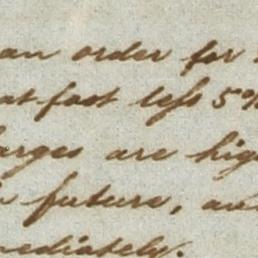 an order for
at foot less 5%
arges are hig
future, an
mediately.